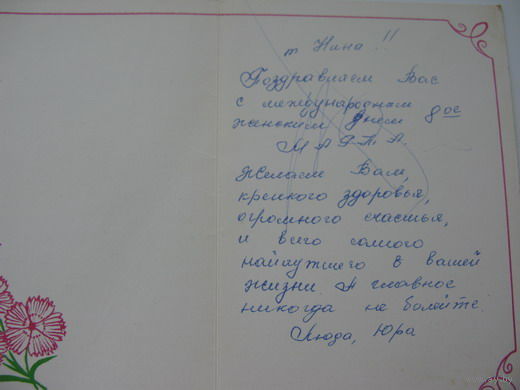 т Нина!!
Поздравляем Вас
с международнам
женским днем 8ое
МАРТА.
Желаем Вам,
крепкого здоровья,
огромного счастья,
и всего самого
найлучшего в вашей
жизни. А главное
никогда не болейте.
Люда, Юра